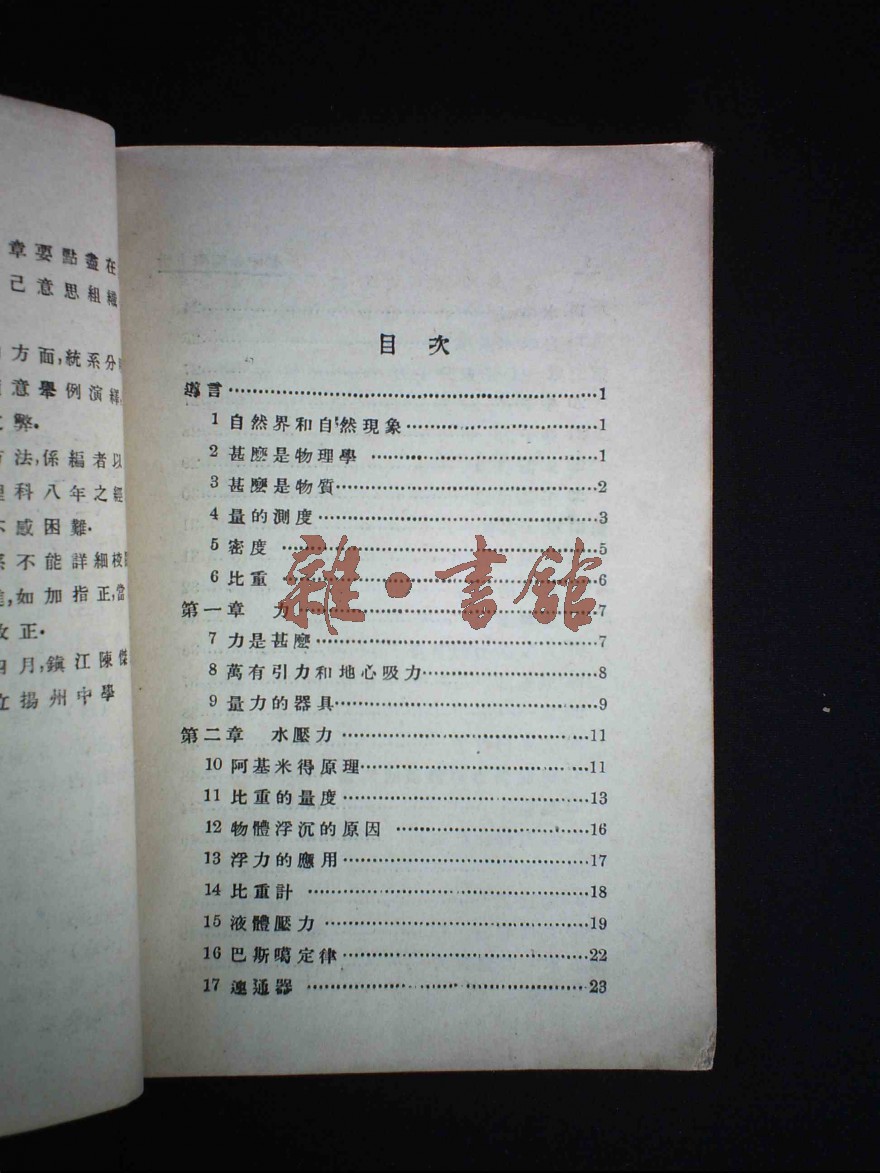 章要點盡在
己意思組織
方面,統系分
意舉例演釋,
弊.
法,係編者以
科八年之經
感困難.
不能詳細校
如加指正,當
改正.
月,鎮江陳傑
揚州中學
目次
導言……1
1 自然界和自然現象……1
2 甚麼是物理學……1
3 甚麼是物質……2
4 量的測度……3
5 密度……5
6 比重……6
第一章 力……7
7 力是甚麼……7
8 萬有引力和地心吸力……8
9 量力的器具……9
第二章 水壓力……11
10 阿基米得原理……11
11 比重的量度……13
12 物體浮沉的原因……16
13 浮力的應用……17
14 比重計……18
15 液體壓力……19
16 巴斯噶定律……22
17 連通器……23
雜·書館